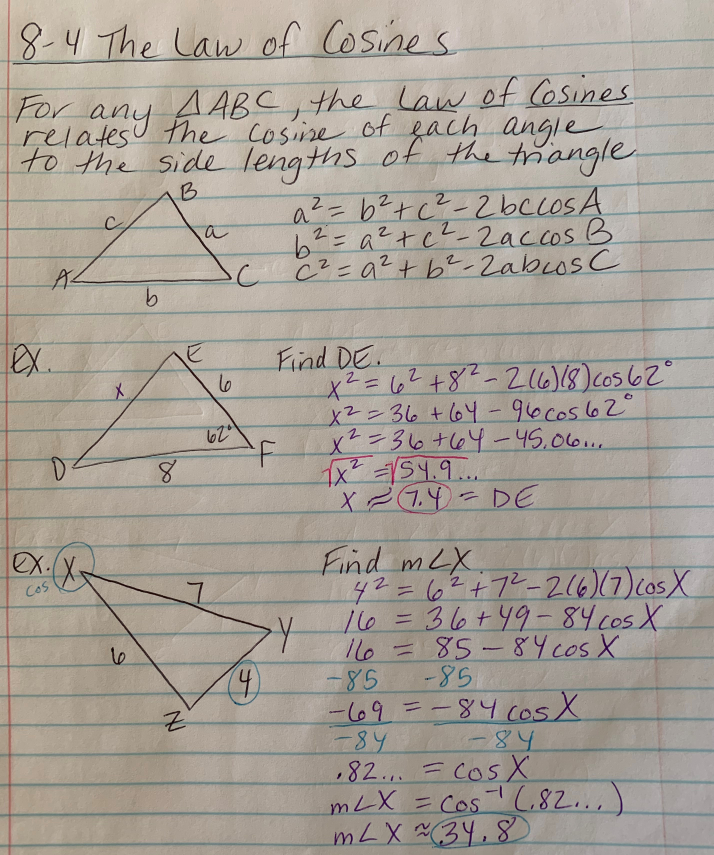 8-4 The Law of Cosines
For any △ABC, the Law of Cosines
relates the cosine of each angle
to the side lengths of the triangle
B
c
a
A
C
b
a² = b² + c² - 2bc cos A
b² = a² + c² - 2ac cos B
c² = a² + b² - 2ab cos C
ex.
E
x
6
62°
D
F
8
Find DE.
x² = 6² + 8² - 2(6)(8) cos 62°
x² = 36 + 64 - 96 cos 62°
x² = 36 + 64 - 45.06...
√x² = √54.9...
x ≈ 7.4 = DE
ex.
cos
X
7
Y
6
4
Z
Find m∠X
4² = 6² + 7² - 2(6)(7) cos X
16 = 36 + 49 - 84 cos X
16 = 85 - 84 cos X
-85 -85
-69 = -84 cos X
-84 -84
.82... = cos X
m∠X = cos⁻¹(.82...)
m∠X ≈ 34.8